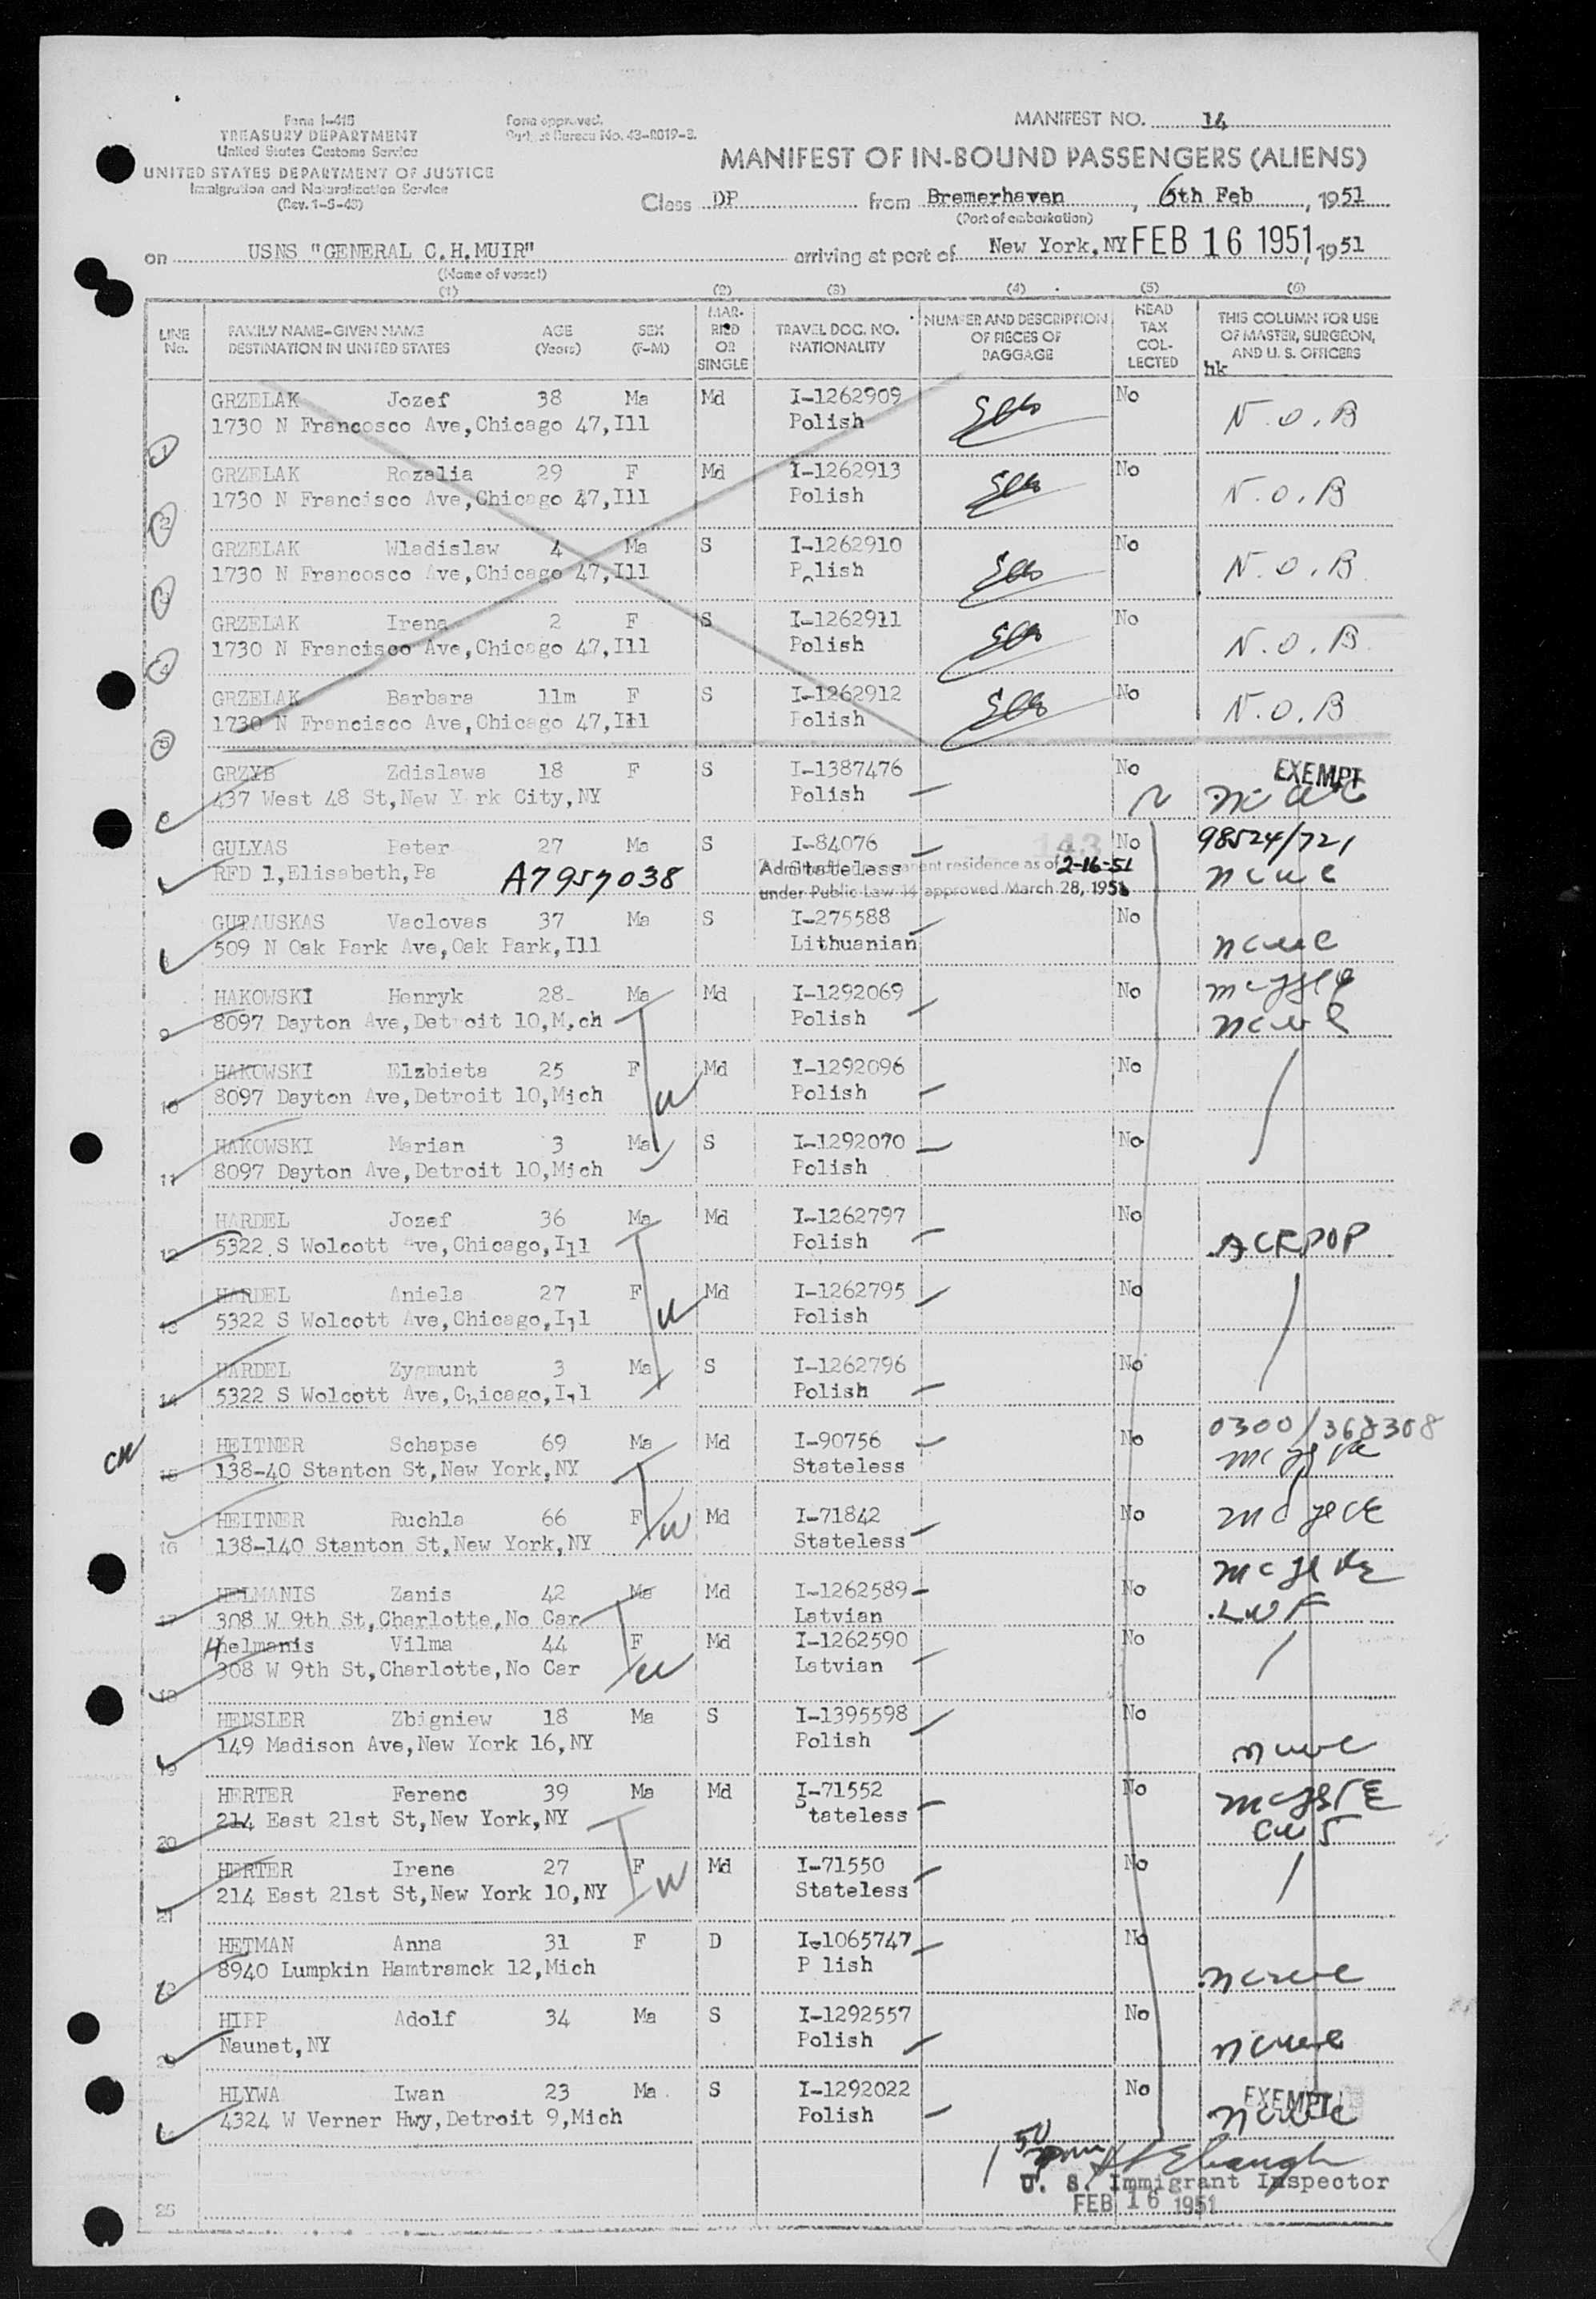 Form I-415
TREASURY DEPARTMENT
United States Customs Service
UNITED STATES DEPARTMENT OF JUSTICE
Immigration and Naturalization Service
(Rev. 1-5-48)
Form approved.
Budget Bureau No. 43-R019-3.
MANIFEST NO. 14
MANIFEST OF IN-BOUND PASSENGERS (ALIENS)
Class DP from Bremerhaven, 6th Feb, 1951
(Port of embarkation)
on USNS "GENERAL C.H.MUIR" arriving at port of New York,NY FEB 16 1951, 1951
(Name of vessel)
(1) (2) (3) (4) (5) (6)
LINE No. FAMILY NAME-GIVEN NAME DESTINATION IN UNITED STATES AGE (Years) SEX (F-M) MARRIED OR SINGLE TRAVEL DOC. NO. NATIONALITY NUMBER AND DESCRIPTION OF PIECES OF BAGGAGE HEAD TAX COLLECTED THIS COLUMN FOR USE OF MASTER, SURGEON, AND U. S. OFFICERS
hk
GRZELAK Jozef 38 Ma Md I-1262909 No N.O.B
1 1730 N Francosco Ave,Chicago 47,Ill Polish
GRZELAK Rozalia 29 F Md I-1262913 No N.O.B
2 1730 N Francisco Ave,Chicago 47,Ill Polish
GRZELAK Wladislaw 4 Ma S I-1262910 No N.O.B
3 1730 N Francosco Ave,Chicago 47,Ill P lish
GRZELAK Irena 2 F S I-1262911 No N.O.B
4 1730 N Francisco Ave,Chicago 47,Ill Polish
GRZELAK Barbara 11m F S I-1262912 No N.O.B
5 1730 N Francisco Ave,Chicago 47,Ill Polish
GRZYB Zdislawa 18 F S I-1387476 No EXEMPT
437 West 48 St,New Y rk City,NY Polish
GULYAS Peter 27 Ma S I-84076 143 No 98524/721
RFD 1,Elisabeth,Pa A7957038 Stateless
Admitted for permanent residence as of 2-16-51
under Public Law 14 approved March 28, 1951
GUTAUSKAS Vaclovas 37 Ma S I-275588 No
509 N Oak Park Ave,Oak Park,Ill Lithuanian
HAKOWSKI Henryk 28 Ma Md I-1292069 No
9 8097 Dayton Ave,Detroit 10,M,ch Polish
HAKOWSKI Elzbieta 25 F Md I-1292096 No
10 8097 Dayton Ave,Detroit 10,Mich Polish
HAKOWSKI Marian 3 Ma S I-1292070 No
11 8097 Dayton Ave,Detroit 10,Mich Polish
HARDEL Jozef 36 Ma Md I-1262797 No
12 5322 S Wolcott Ave,Chicago,Ill Polish ACRPOP
HARDEL Aniela 27 F Md I-1262795 No
13 5322 S Wolcott Ave,Chicago,Ill Polish
HARDEL Zygmunt 3 Ma S I-1262796 No
14 5322 S Wolcott Ave,Chicago,Ill Polish
HEITNER Schapse 69 Ma Md I-90756 No 0300/368308
15 138-40 Stanton St,New York,NY Stateless
HEITNER Ruchla 66 F Md I-71842 No
16 138-140 Stanton St,New York,NY Stateless
HELMANIS Zanis 42 Ma Md I-1262589 No
17 308 W 9th St,Charlotte,No Car Latvian LWF
Helmanis Vilma 44 F Md I-1262590 No
18 308 W 9th St,Charlotte,No Car Latvian
HENSLER Zbigniew 18 Ma S I-1395598 No
19 149 Madison Ave,New York 16,NY Polish
HERTER Ferenc 39 Ma Md I-71552 No
20 214 East 21st St,New York,NY Stateless
HERTER Irene 27 F Md I-71550 No
21 214 East 21st St,New York 10,NY Stateless
HETMAN Anna 31 F D I-1065747 No
8940 Lumpkin Hamtramck 12,Mich P lish
HIPP Adolf 34 Ma S I-1292557 No
Naunet,NY Polish
HLYWA Iwan 23 Ma S I-1292022 No EXEMPT
4324 W Verner Hwy,Detroit 9,Mich Polish
1 50 pm
U. S. Immigrant Inspector
FEB 16 1951
25